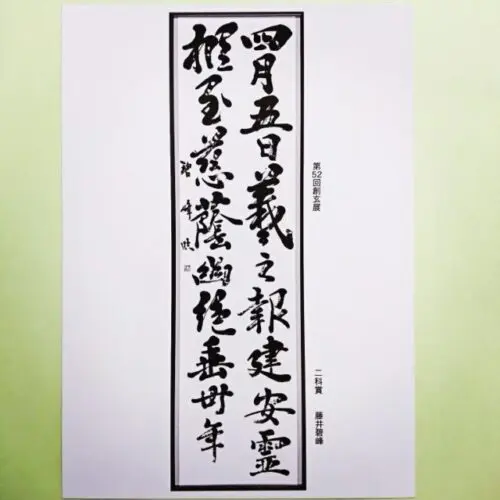 第52回創玄展
二科賞　藤井碧峰
四月五日羲之報建安靈
柩至慈蔭幽絶垂卅年
碧峰臨